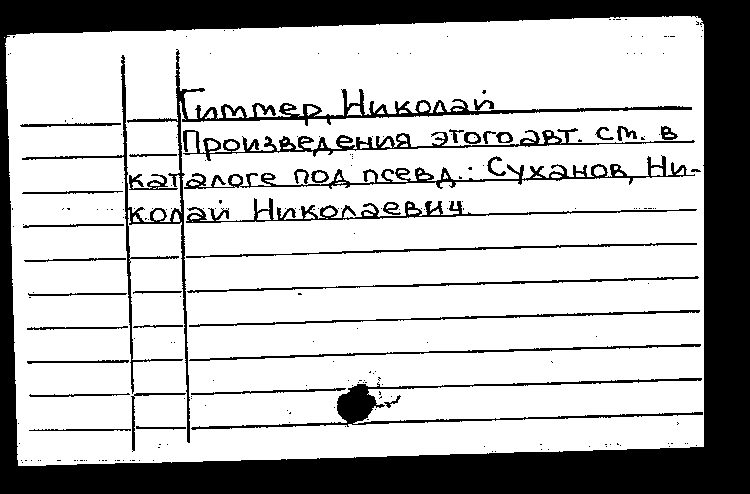 Гиммер, Николай
Произведения этого авт. см. в
каталоге под псевд.: Суханов, Ни-
колай Николаевич.